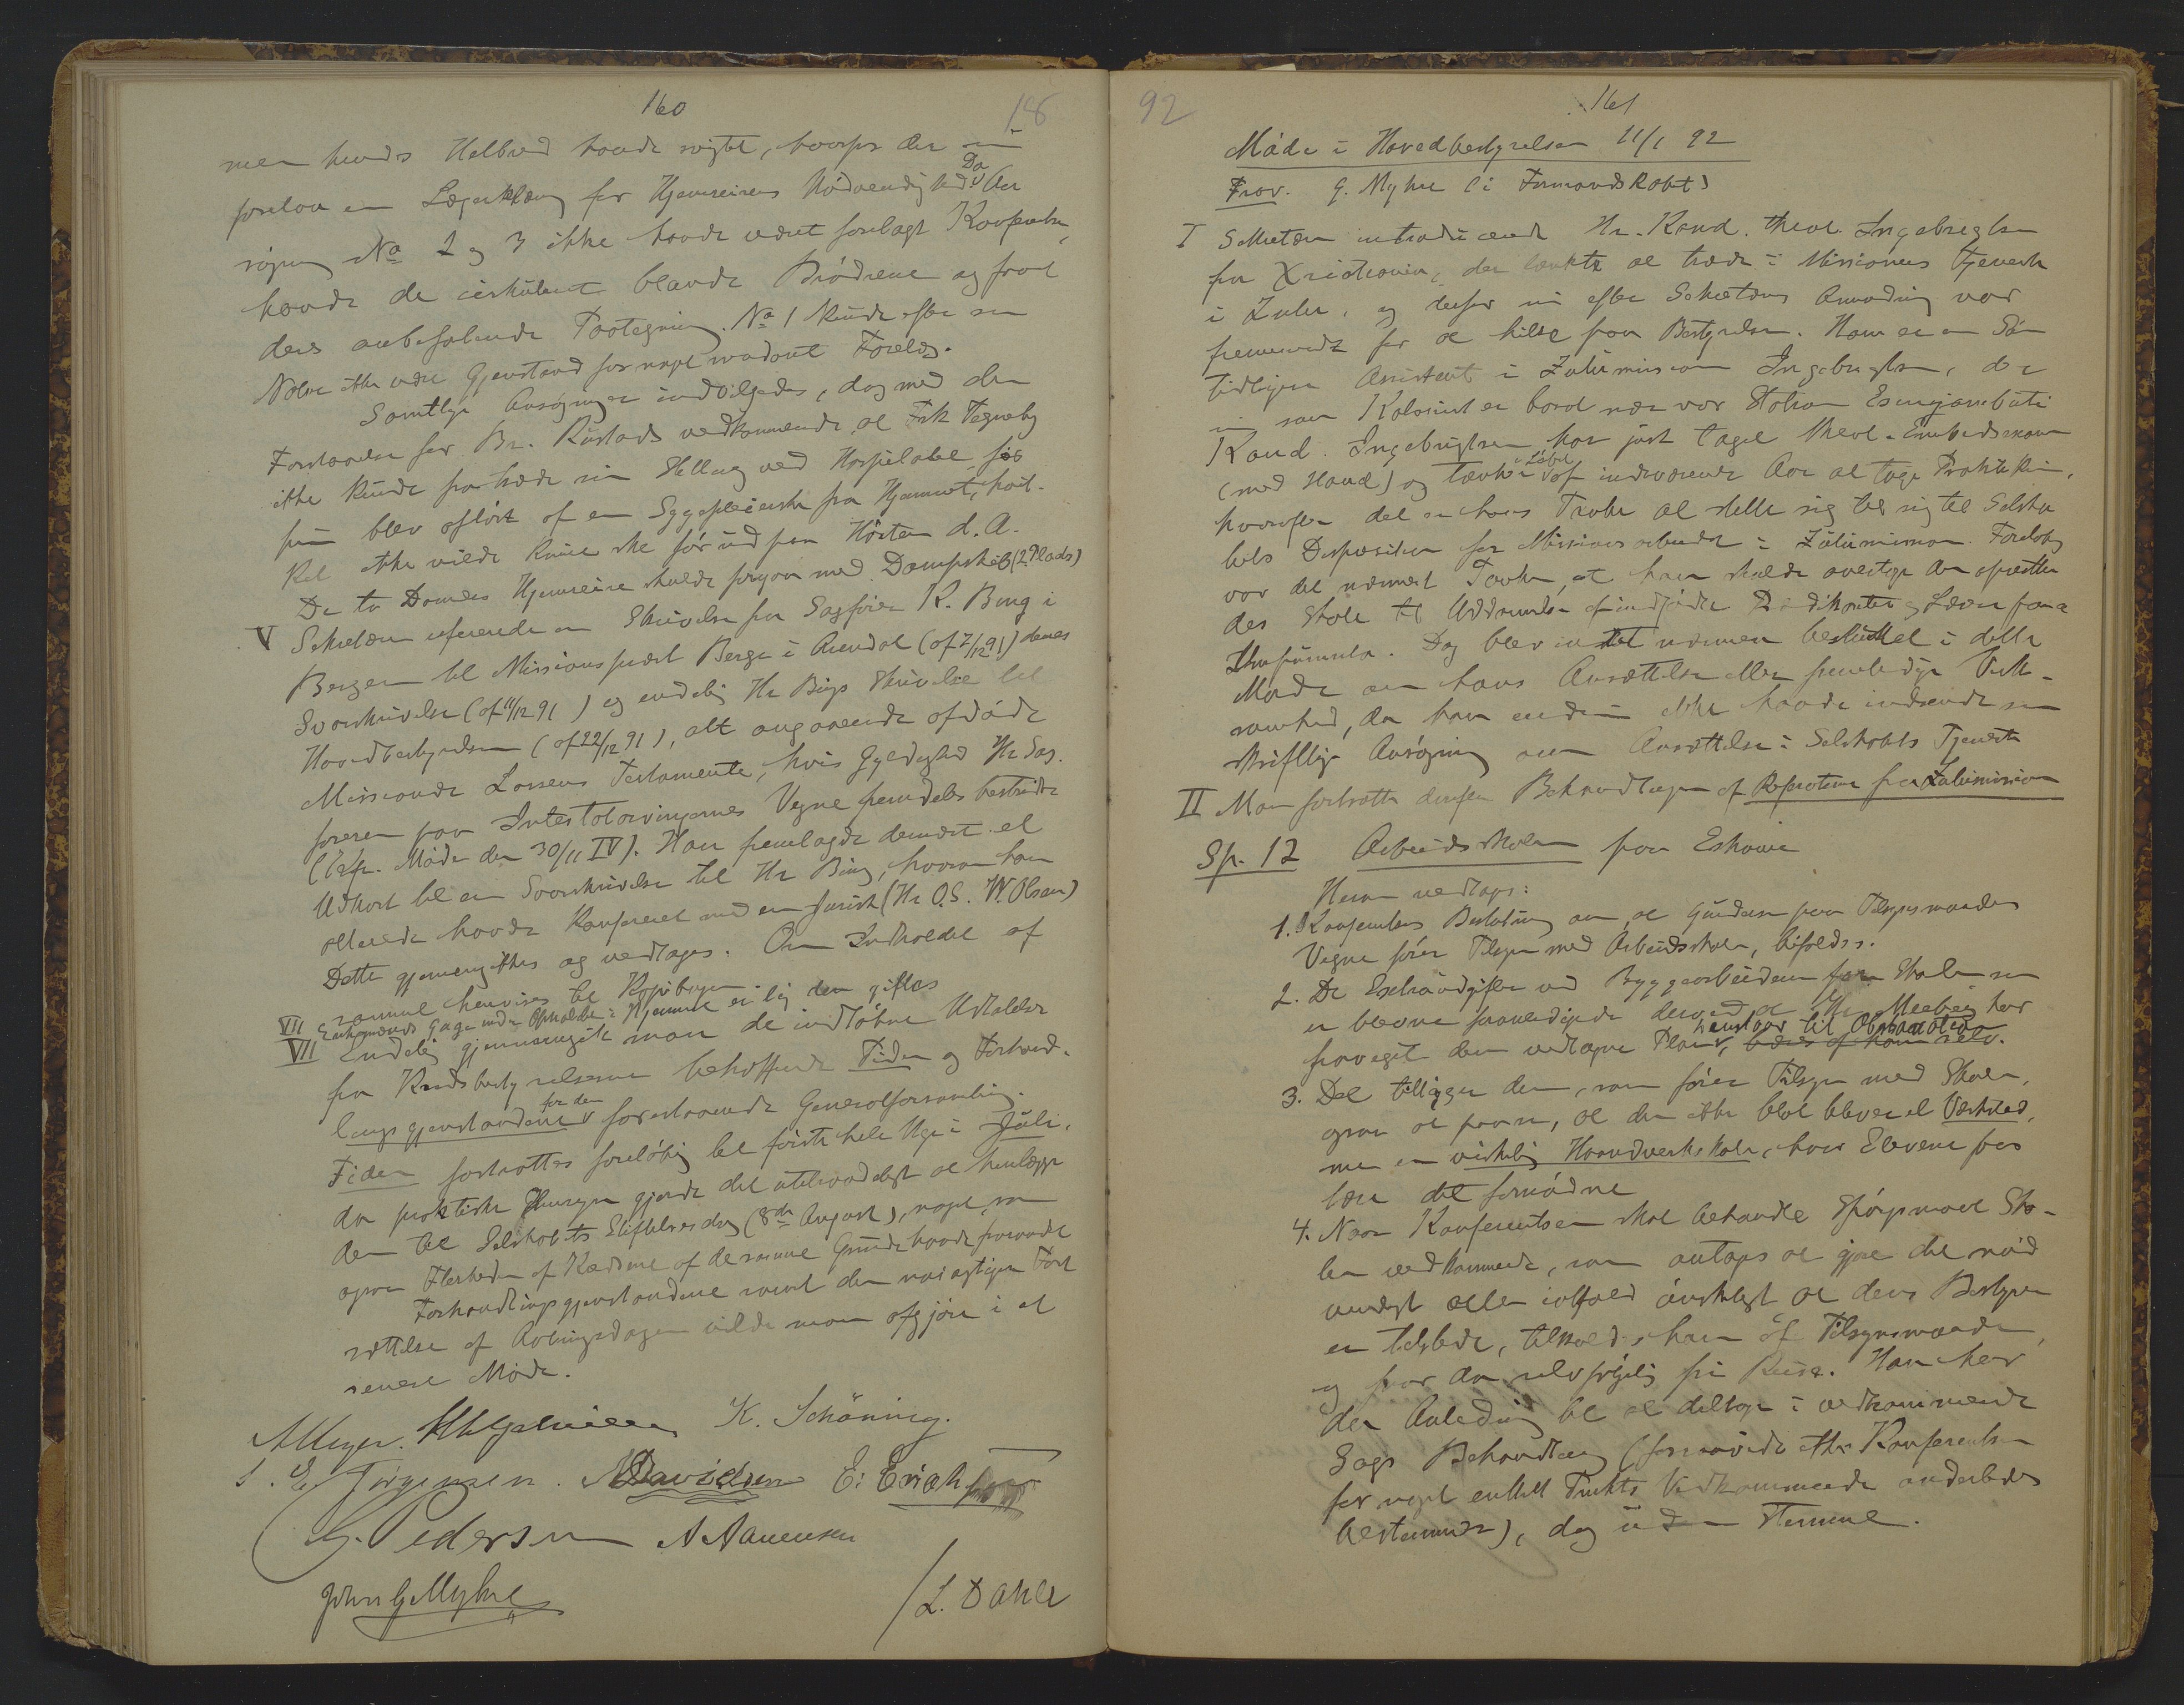 160
186
men hends Helbred havde svigtet, hvorfor der nu
forelaa en Lægeerklæring for Hjemreisens Nødvendighed. Da An
søgning No 2 og 3 ikke havde været forelagt Konferentsen,
havde de cirkuleret blandt Brødrene og faaet
deres anbefalende Paategning. No 1 kunde efter sin
Natur ikke være Gjenstand for noget saadant Forelæg.
Samtlige Ansøgninger indvilgedes, dog med den
Forstaaelse for Br. Rustads vedkommende, at Frk Tegneby
ikke kunde fratræde sin Stilling ved Hospitalet, før
hun blev afløst af en Sygepleierske fra Hjemmet, hvil-
ket ikke vilde kunne ske før ud paa Høsten d. A.
De to Damers Hjemreise skulde foregaa med Dampskib (2. Plads)
V Sekretæren refererede en Skrivelse fra Sagfører K. Bing i
Bergen til Missionsprest Berge i Arendal (af 7/12 91) dennes
Svarskrivelse (af 11/12 91) og endelig Hr Bings Skrivelse til
Hovedbestyrelsen (af 22/12 91), alt angaaende afdøde
Missionær Larsens Testamente, hvis Gyldighed Hr Sag-
føreren paa Intestatarvingernes Vegne fremdeles bestridte
(Cfr. Møde den 30/11 IV). Han fremlagde dernæst et
Udkast til en Svarskrivelse til Hr Bing, hvorom han
allerede havde konfereret med en Jurist (Hr O.S. W. Olsen)
Dette gjennemgikkes og vedtoges. Om Indholdet af
samme henvises til Kopibogen
VII Enkemænds Gage under Opholdet i Hjemmet er lig den giftes
VII Endelig gjennemgik man de indløbne Udtalelser
fra Kredsbestyrelserne behøffende Tiden og Forhand-
lingsgjenstandene for den forestaaende Generalforsamling.
Tiden fastsattes foreløbig til første hele Uge i Juli,
da praktiske Hensyn gjorde det utilraadeligt at henlægge
den til Selskabets Stiftelsesdag (8de August), noget, som
ogsaa Flerheden af Kredsene af de samme Grunde havde fraraadt
Forhandlingsgjenstandene samt den nøiagtigere Fast
sættelse af Aabningsdagen vilde man afgjøre i et
senere Møde.
K. Schöning.
S. E. Jörgensen. Davidsen E: Erich
G. Pedersen A Aanensen
John G Myhre
/L. Dahle
92
161
Møde i Hovedbestyrelsen 11/1 92
Frav. G. Myhre (i Formandskabet)
I Sekretæren introducerede Hr. Kand. theol. Ingebrigtsen
fra Xristiania, der tænkte at træde i Missionens Tjeneste
i Zulu, og derfor nu efter Sekretærens Anmodning var
fremmødt for at hilse paa Bestyrelsen. Han er en Søn
tidligere Assistent i Zulumissionen Ingebrigtsen, der
nu som Kolonist er bosat nær vor Station Esinyambuti
Kand. Ingebrigtsen har just taget theol. Embedsexamen
(med Haud) og tænker i Løbet af indeværende Aar at tage Praktikum,
hvorefter det er hans Tanke at stille sig til sig til Selska
bets Disposition for Missionsarbeidet i Zulumissionen. Foreløbig
var det nærmest Tanken, at han skulde overtage den oprettede
des Skole til Uddannelse af indfødte Prædikanter og Lærere paa
Umpumulo. Dog blev intet nærmere besluttet i dette
Møde om hans Ansættelse eller fremtidige Virk-
somhed, da han endnu ikke havde indsendt sin
skriftlige Ansøgning om Ansættelse i Selskabets Tjeneste
II Man fortsatte derpaa Behandlingen af Referaterne fra Zulumissionen
Sp. 12 Arbeidsskolen paa Eshowe
Herom vedtoges:
1. Konferentsens Beslutning om, at Gundersen paa Tilsynsmandens
Vegne fører Tilsyn med Arbeidsskolen, bifaldes.
2. De Extraudgifter ved Byggearbeiderne for Skolen som
er blevne foranledigede derved, at Hr. Meeberg har
fraveget den vedtagne Plan, henstaar til Observation bæres af ham selv.
3. Det tilligger den, som fører Tilsyn med Skolen,
ogsaa at paase, at den ikke blot bliver et Værksted,
men en virkelig Haandverksskole, hvor Eleverne faar
lære det fornødne
4. Naar Konferentsen skal behandle Spørgsmaal Sko-
len vedkommende, som antages at gjøre det nød
vendigt eller ialfald ønskeligt at dens Bestyrer
er tilstede, tilkaldes han af Tilsynsmanden,
og faar da selvfølgelig fri Reise. Han har
der Anledning til at deltage i vedkommende
Sags Behandling (forsaavidt ikke Konferentsen
for noget enkelt Punkts Vedkommende anderledes
bestemmer), dog uden Stemme.